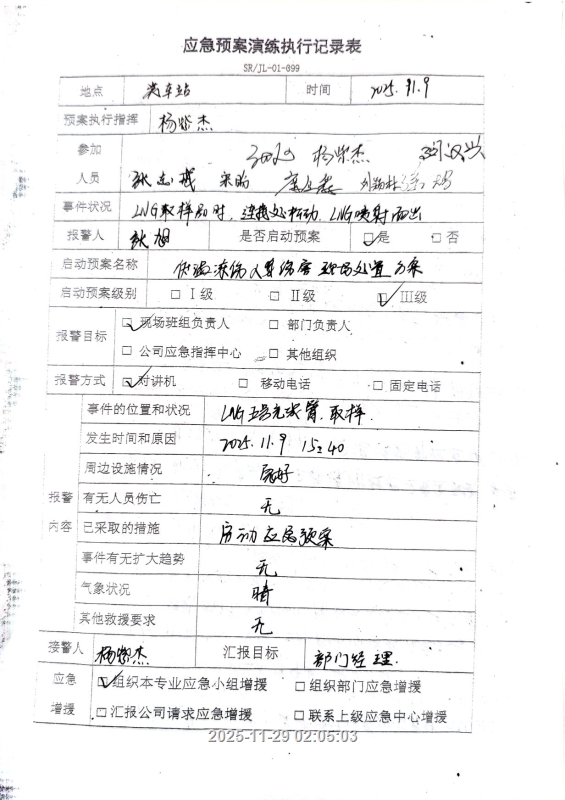 应急预案演练执行记录表
SR/JL-01-099
地点 装车站 时间 2025.11.9
预案执行指挥 杨紫杰
参加 杨紫杰
人员 狄志成
事件状况 LNG取样品时，连接处松动，LNG喷射而出
报警人 狄旭 是否启动预案 ☑是 □否
启动预案名称 低温冻伤人员伤害现场处置方案
启动预案级别 □Ⅰ级 □Ⅱ级 ☑Ⅲ级
报警目标 ☑现场班组负责人 □部门负责人
□公司应急指挥中心 □其他组织
报警方式 ☑对讲机 □移动电话 □固定电话
报警内容
事件的位置和状况 LNG 装车臂.取样.
发生时间和原因 2025.11.9 15:40
周边设施情况 良好
有无人员伤亡 无
已采取的措施 启动应急预案
事件有无扩大趋势 无
气象状况 晴
其他救援要求 无
接警人 杨紫杰 汇报目标 部门经理.
应急 ☑组织本专业应急小组增援 □组织部门应急增援
增援 □汇报公司请求应急增援 □联系上级应急中心增援
2025-11-29 02:05:03